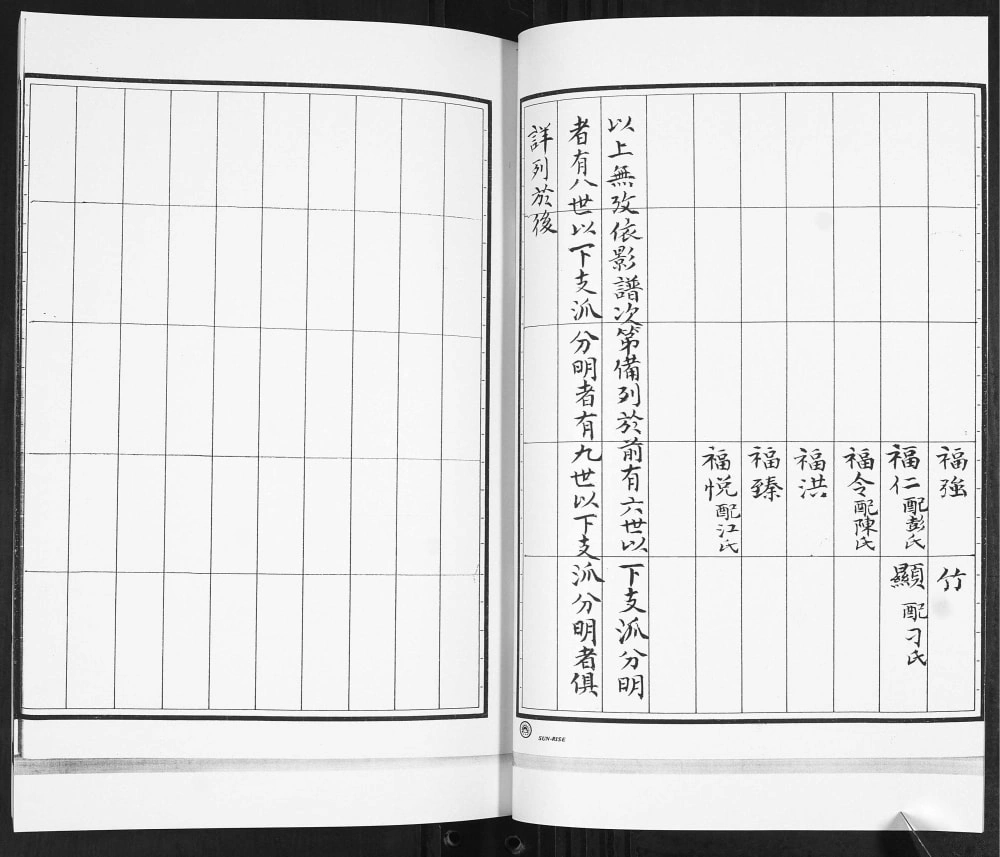 福強
竹
福仁配彭氏
顯配刁氏
福令配陳氏
福洪
福臻
福悅配江氏
以上無攷依影譜次第備列於前有六世以下支派分明
者有八世以下支派分明者有九世以下支派分明者俱
詳列於後
SUN-RISE